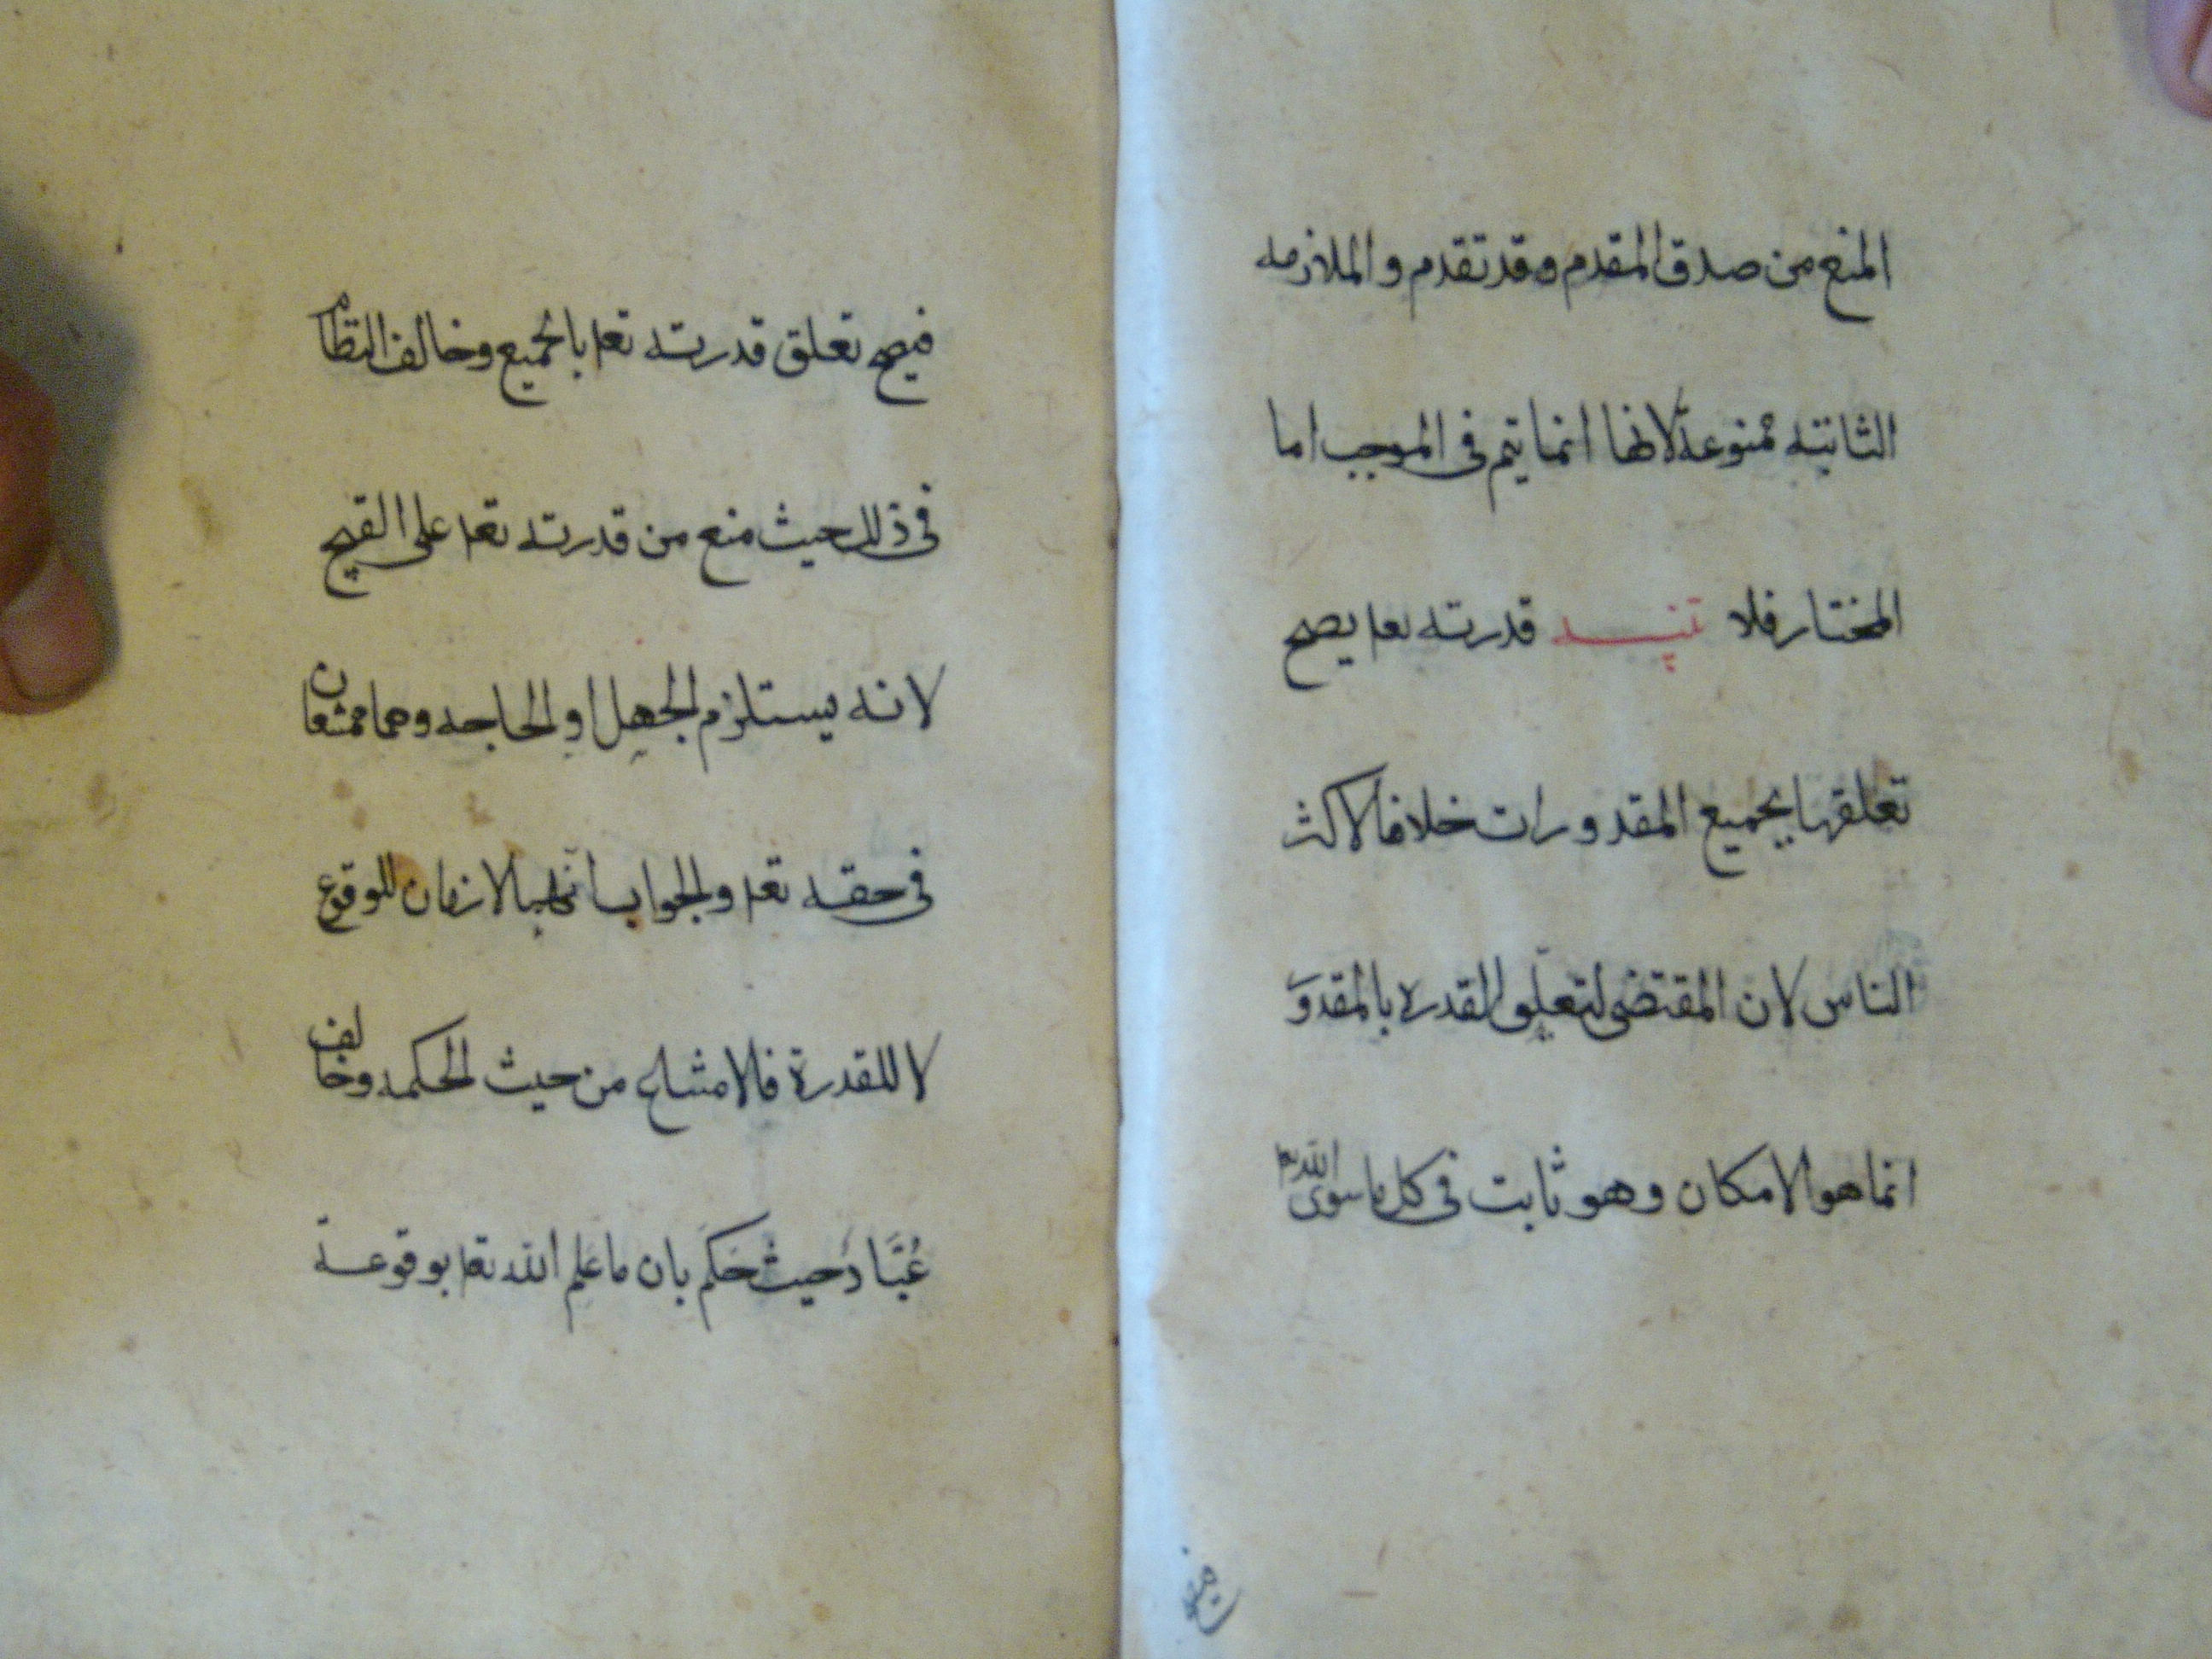 المنع من صدق المقدم وقد تقدم والملازمه
الثانيه ممنوعة لانها انما يتم فى الموجب اما
المختار فلا تنبيه قدرته تعا يصح
تعلقها بجميع المقدورات خلافا لاكثر
الناس لان المقتضى لتعلق القدره بالمقدو
انما هو الامكان وهو ثابت فى كل ما سوى الله تعا
فيصح
فيصح تعلق قدرته تعا بالجميع وخالف النظام
فى ذلك حيث منع من قدرته تعا على القبيح
لانه يستلزم الجهل او الحاجه وهما ممتنعان
فى حقه تعا والجواب انهما لازمان للوقوع
لا للقدرة فالامتناع من حيث الحكمه وخالف
عُبَّاد حيث حَكَم بان ما علم الله تعا بوقوعه